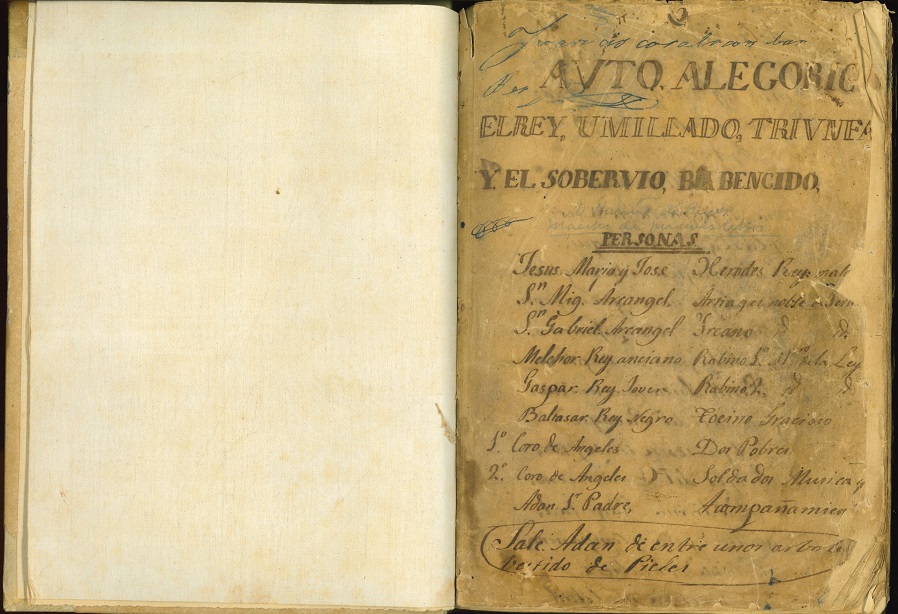 Juan de
AVTO. ALEGORIC
EL REY, UMILLADO, TRIVNFA
Y EL SOBERVIO, BABENCIDO,
PERSONAS.
Jesus. Maria y Jose Herodes Rey
Sn. Mig. Arcangel.
Sn. Gabriel. Arcangel Ircano
Melchor. Rey. anciano Rabino 1o. de la Ley
Gaspar. Rey. Joven Rabino 2
Baltasar. Rey. Negro Tocino Gracioso
1o. Coro. de Angeles Dos Pobres
2o. Coro. de Angeles Soldados Musica y
Adan. Padre, Acompañamien
Sale. Adan de entre unos arbo
bestido de Pieles